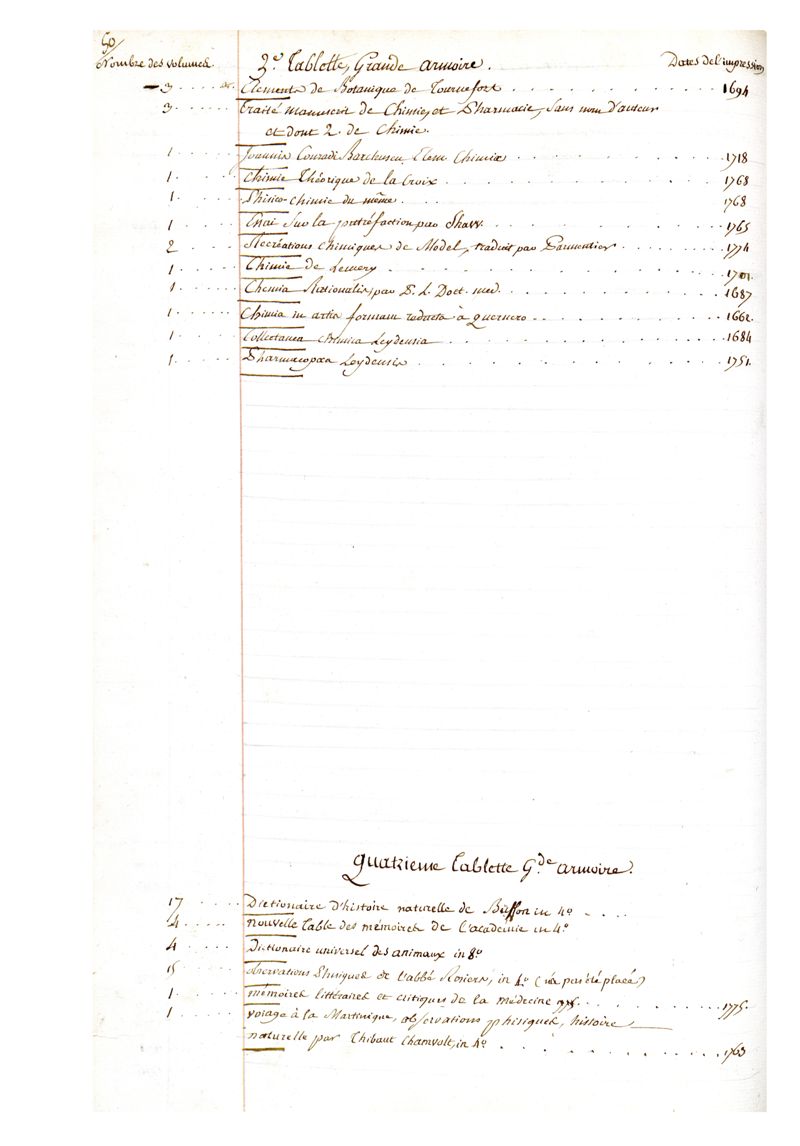 50/
Nombre des volumes. 3.e Tablette, Grande armoire. Dates de l'impression
3 Elements de Botanique de Tournefort 1694
3 Traité manuscrit de Chimie, et Pharmacie, sans nom d'auteur
et dont 2. de Chimie.
1 Joannis Conradi Barchusen, Elem. Chimiæ 1718
1 Chimie Théorique de la Croix 1768
1 Phisico-chimie du même 1768
1 Essai sur la putréfaction par Shaw. 1765
2 Recréations Chimiques de Model, traduit par Parmentier 1774
1 Chimie de Lemery 1701
1 Chemia Rationalis, par P. L. Doct. med. 1687
1 Chimia in artis formam redacta à quernero 1662
1 Collectanea chimica Leydensia 1684
1 Pharmacopæa Leydensis 1751
Quatrieme Tablette G.de armoire.
17 Dictionaire d'histoire naturelle de Buffon in 4°
4 nouvelle Table des mémoires de l'académie in 4°
4 Dictionaire universel des animaux in 8°
15 observations Phisiques de l'abbé Rosiers, in 4° ( pas été placé)
1 mémoires littéraires et critiques de la médecine 1775
1 voiage à la Martinique, observations phisiques, histoire
naturelle par Thibaut Chamvolt, in 4° 1763